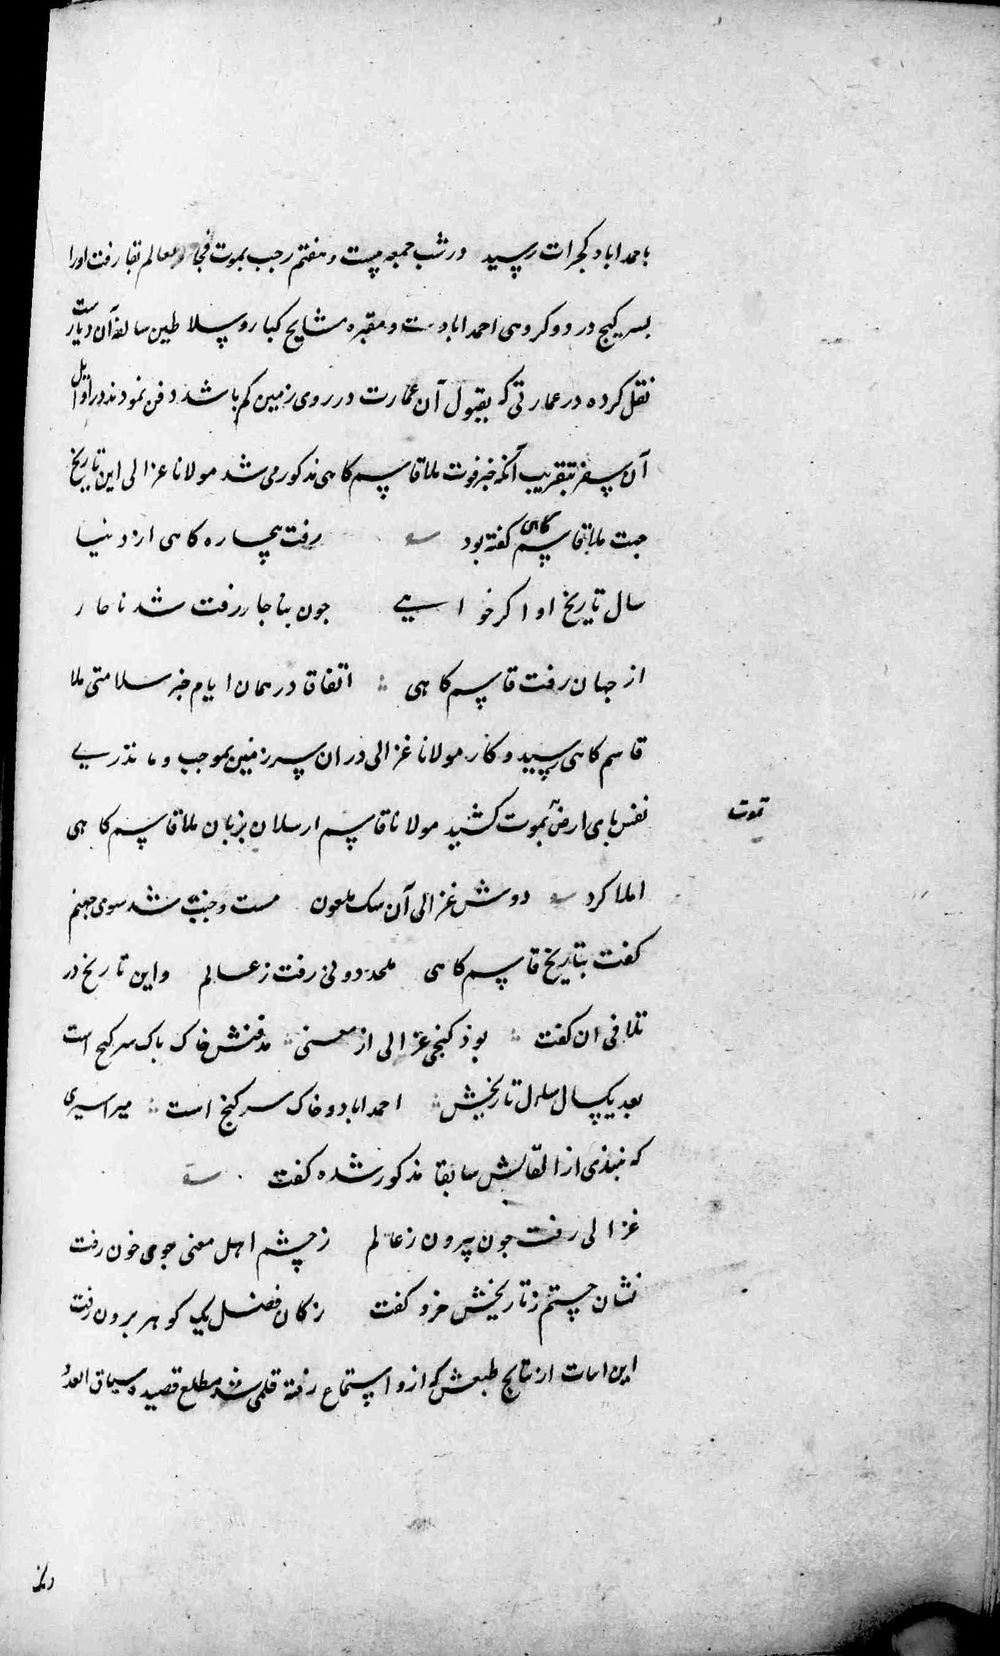 باحمداباد کجرات رسید در شب جمعه بیست و هفتم رجب بموت فجا و بعالم بقا رفت اورا
بسر کیج در دو کروهی احمداباد ست و مقبره مشایخ کبار و سلاطین سالفه آن دیار ست
نقل کرده در عمارتی که بقبول آن عمارت در روی زمین کم باشد دفن نمودند در اوایل
آن سفر بتقریب آنکه خبر فوت ملا قاسم کاهی مذکور می شد مولانا غزالی این تاریخ
جهت ملا قاسم کاهی گفته بود رفت بیچاره کاهی از دنیا
سال تاریخ او اکر خواهی جون بناجار رفت شد ناچار
از جهان رفت قاسم کاهی اتفاقا در همان ایام خبر سلامتی ملا
قاسم کاهی رسید و کار مولانا غزالی در ان سرزمین بموجب و ما تدری
نفس بای ارض تموت کشید مولانا قاسم ارسلان بزبان ملا قاسم کاهی
تموت
املا کرد دوش غزالی آن سک ملعون مست و جنب شد سوی جهنم
کفت بتاریخ قاسم کاهی ملحد دونی رفت ز عالم و این تاریخ در
تلافی ان کفت بود کنجی غزالی از معنی مدفنش خاک باک سر کنج است
بعد یکسال سال تاریخش احمداباد و خاک سر کنج است میر اسیری
که نبذی از القابش سابقا مذکور شده کفت
غزالی رفت جون بیرون ز عالم ز چشم اهل معنی جوی خون رفت
نشان جستم ز تاریخش خرد کفت ز کان فضل یک کوهر برون رفت
این ابیات از نتایج طبعش که ازو استماع رفته قلمی شد مطلع قصیده سیاق العدد